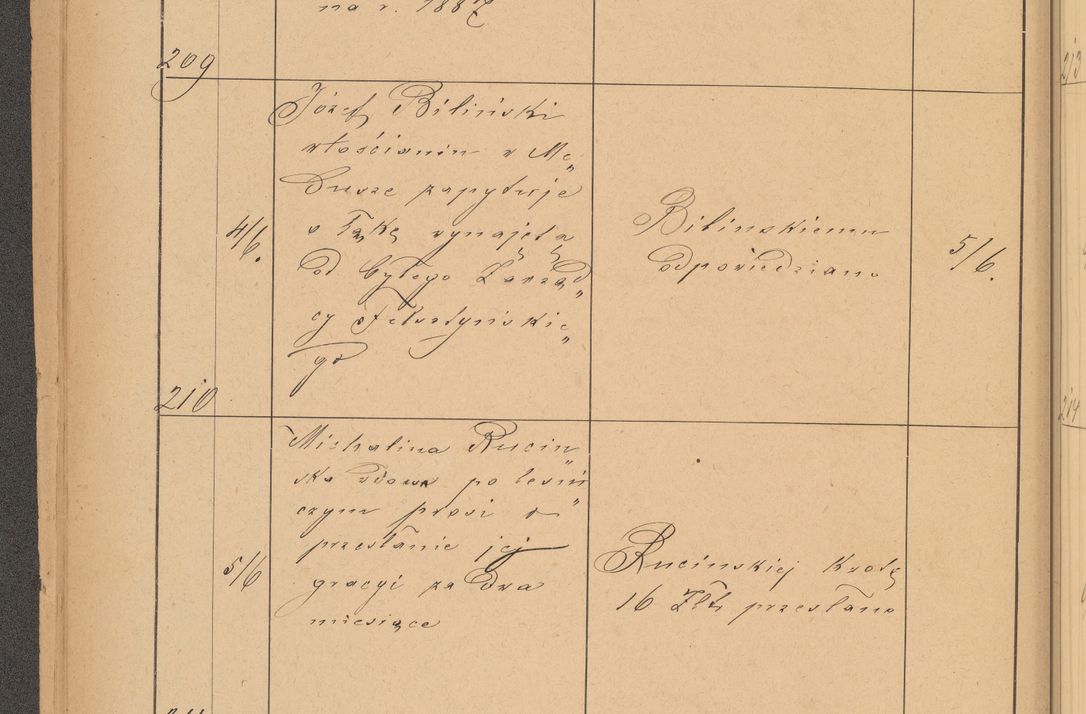 na r. 1887
209
Józef Biliński
włościanin z Me„
Dusze zapytuje
o łąkę wynajętą
4/6.
od byłego Zarząd„
cy Fetsatyńskie„
go
Bilinskiemu
odpowiedziano
5/6.
210
Michalina Rucin„
ska wdowa po leśni„
czym prosi o
przesłanie jej
gracyi za dwa
miesiące
5/6
Rucinskiej Kwotę
16 Złr przesłano
213
214